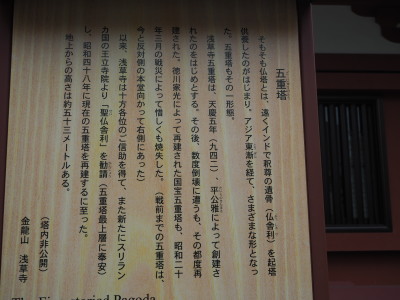 五重塔
そもそも仏塔とは、遠くインドで釈尊の遺骨（仏舎利）を起塔
供養したのがはじまり。アジア東漸を経て、さまざまな形となっ
た。五重塔もその一形態。
浅草寺五重塔は、天慶五年（九四二）、平公雅によって創建さ
れたのをはじめとする。その後、数度倒壊に遭うも、その都度再
建された。徳川家光によって再建された国宝五重塔も、昭和二十
年三月の戦災によって惜しくも焼失した。（戦前までの五重塔は、
今と反対側の本堂向かって右側にあった）
以来、浅草寺は十方各位のご信助を得て、また新たにスリラン
カ国の王立寺院より「聖仏舎利」を勧請（五重塔最上層に奉安）
し、昭和四十八年に現在の五重塔を再建するに至った。
地上からの高さは約五十三メートルある。
（塔内非公開）
金龍山 浅草寺
The Five-storied Pagoda